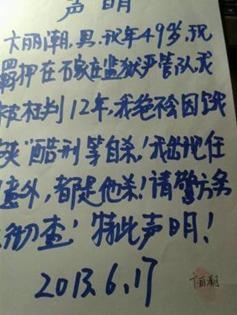 声明
卞丽潮，男，现年49岁，现
羁押在石家庄监狱严管队或
被枉判12年，我绝不会因饿
"酷刑等自杀！我出现任
意外，都是他杀！请警方务
彻查！特此声明！
2013.6.17
卞丽潮